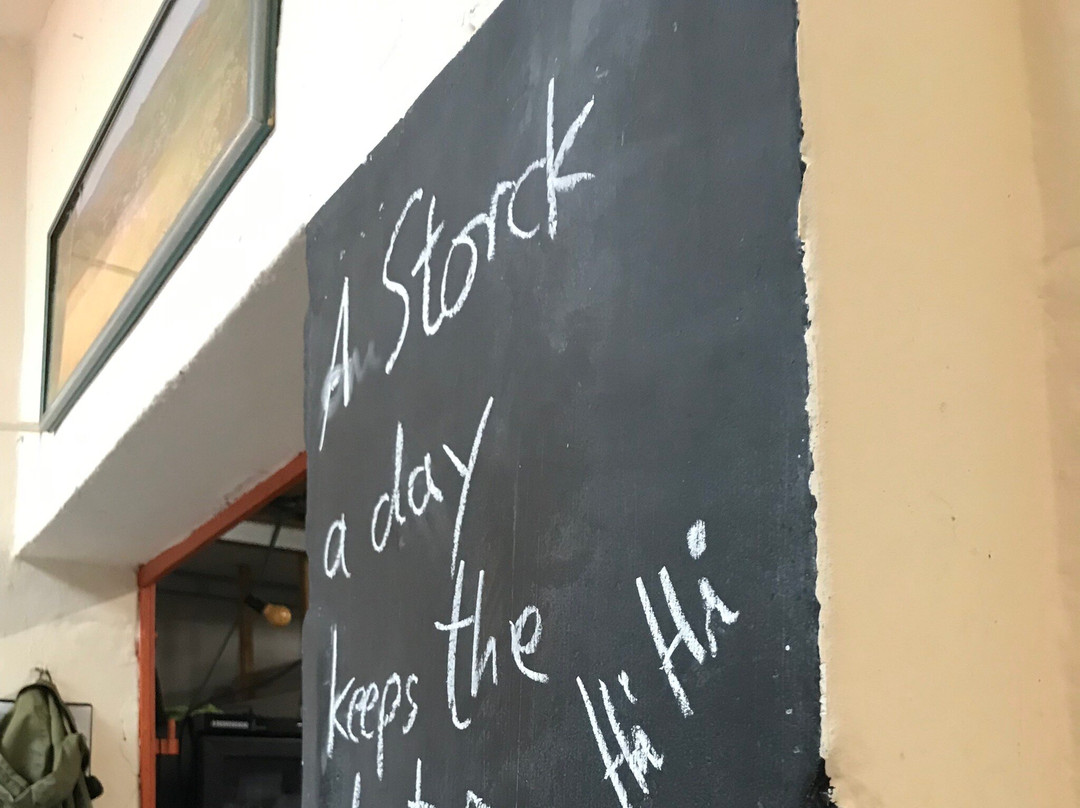 A Storck
a day
keeps the
Hi Hi